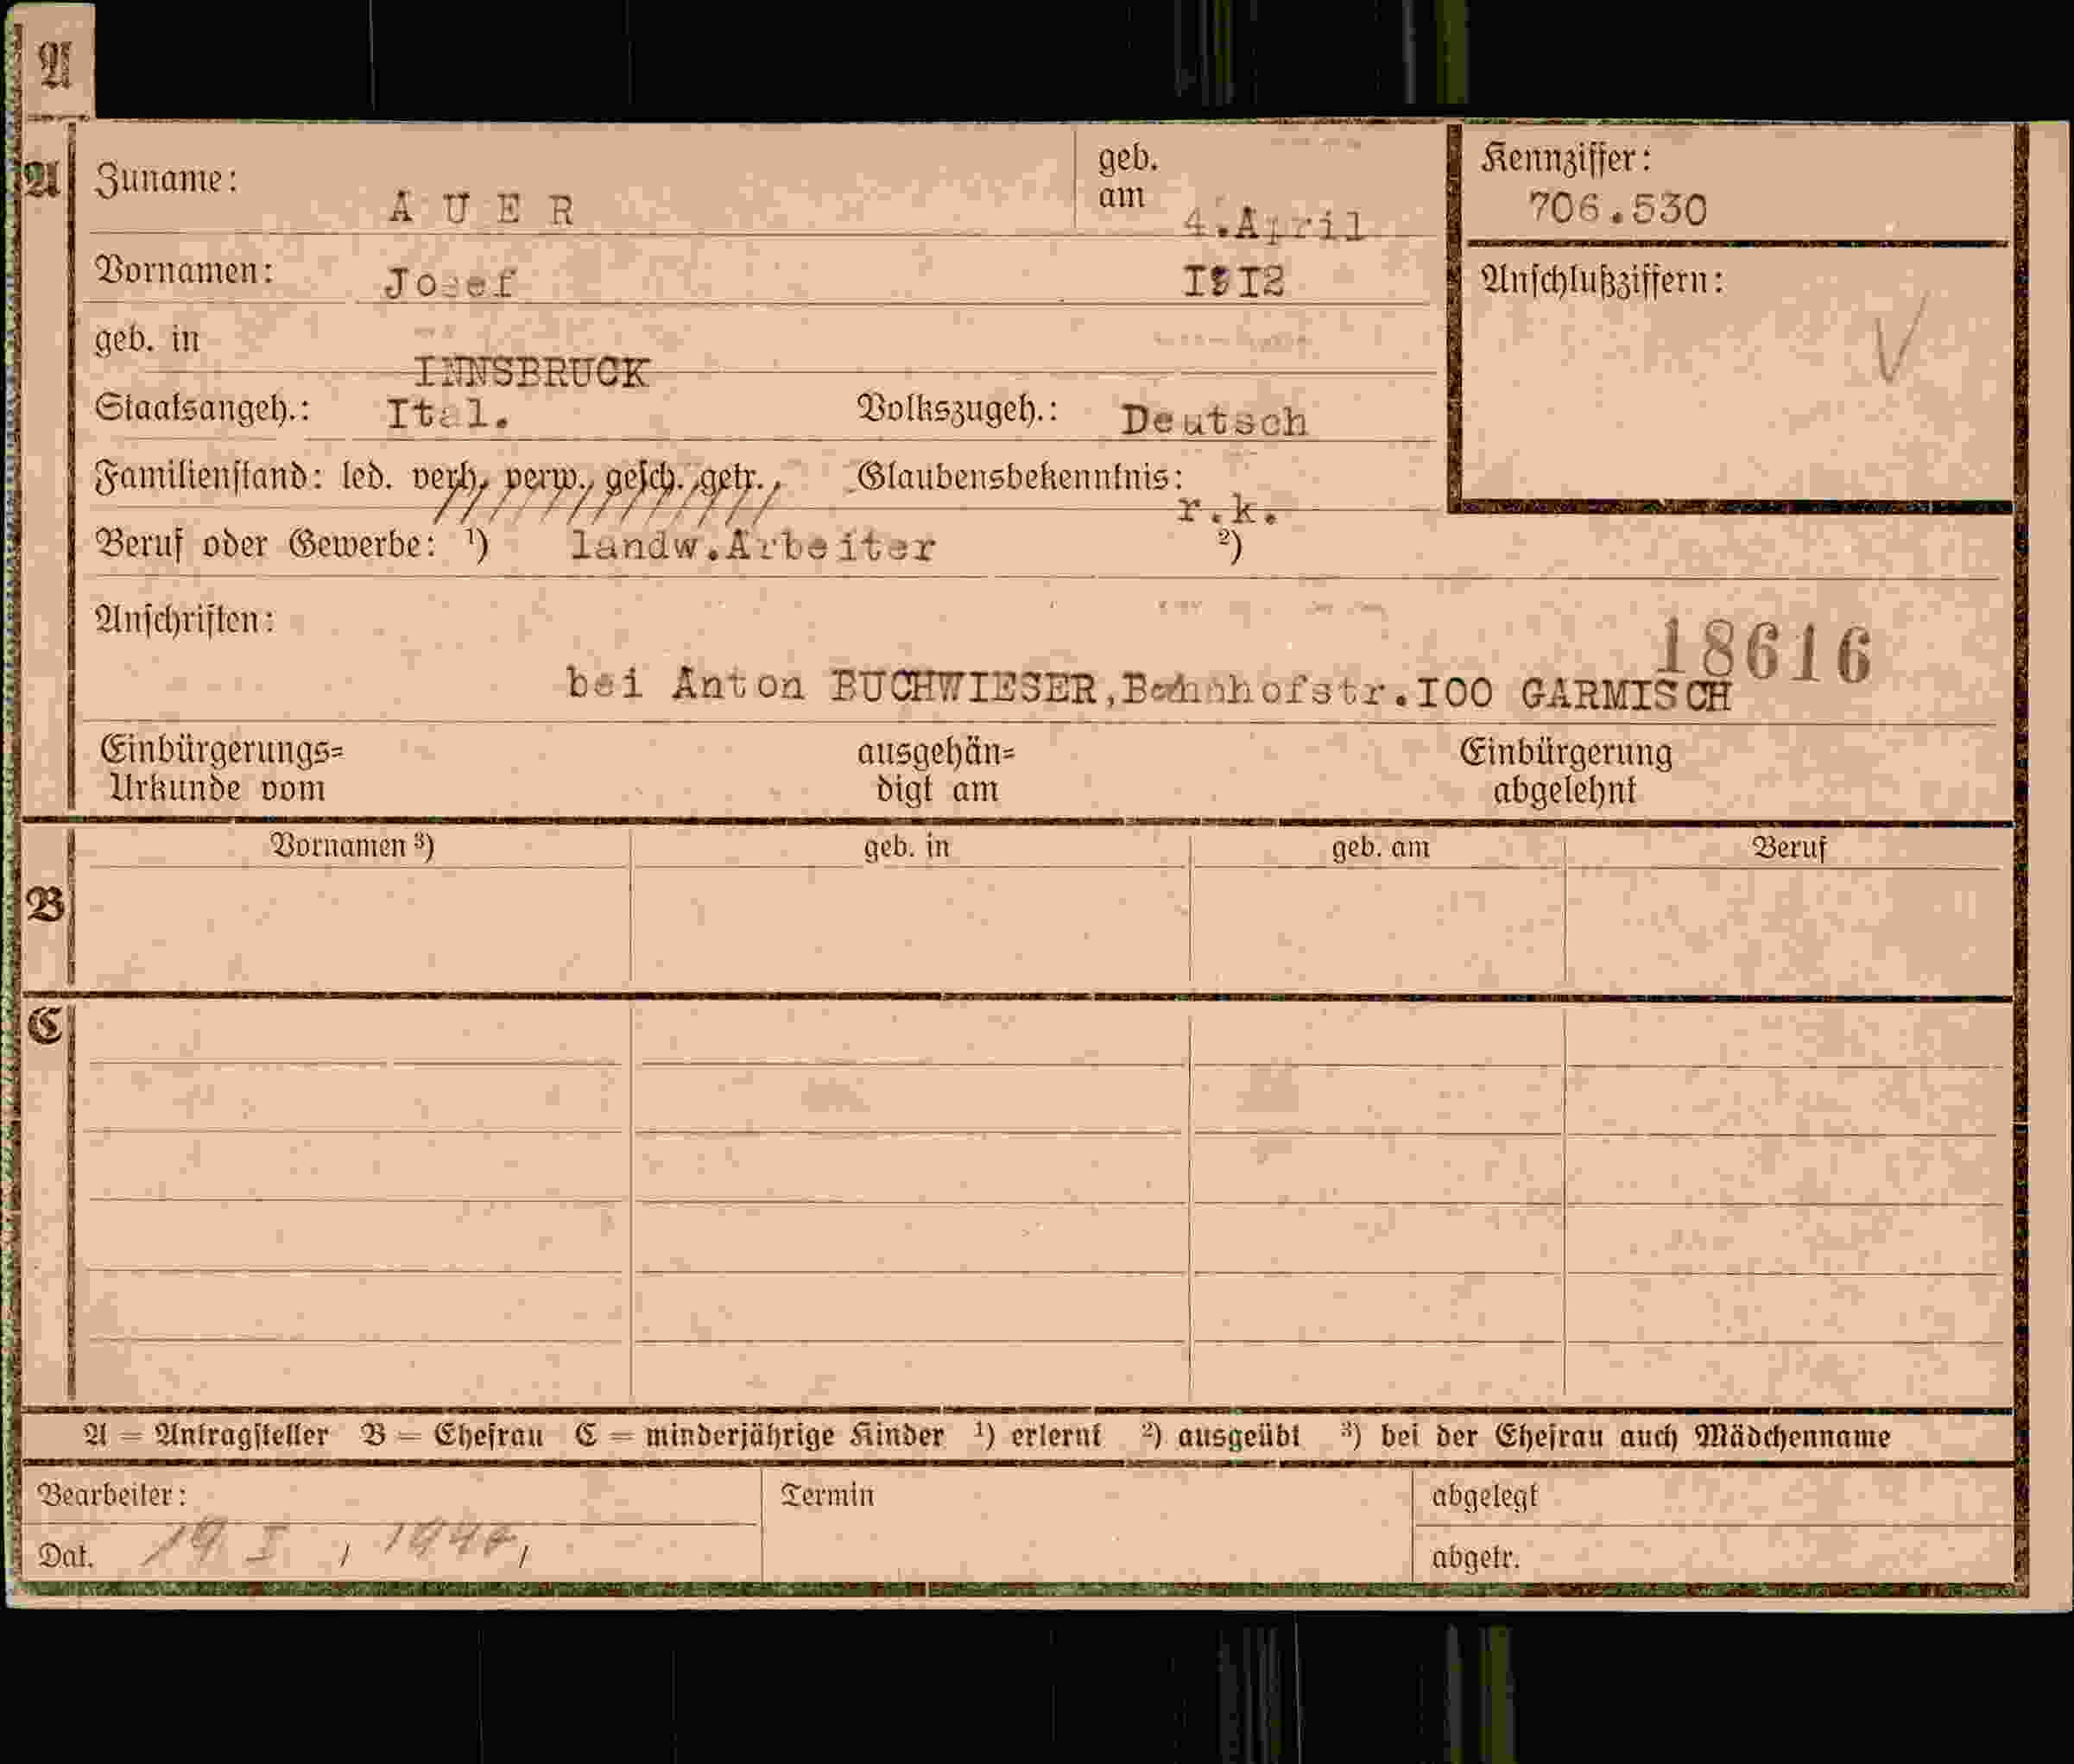 A
A Zuname: AUER geb. am 4.April Kennziffer: 706.530
Vornamen: Josef I9I2 Anschlußziffern:
geb. in INNSBRUCK
Staatsangeh.: Ital. Volkszugeh.: Deutsch
Familienstand: led. verh. verw., gesch. getr., Glaubensbekenntnis: r.k.
Beruf oder Gewerbe: ¹) landw.Arbeiter ²)
Anschriften: 18616
bei Anton BUCHWIESER,Bahnhofstr.I00 GARMISCH
Einbürgerungs= ausgehän= Einbürgerung
Urkunde vom digt am abgelehnt
Vornamen ³) geb. in geb. am Beruf
B
C
A = Antragsteller B = Ehefrau C = minderjährige Kinder ¹) erlernt ²) ausgeübt ³) bei der Ehefrau auch Mädchenname
Bearbeiter: Termin abgelegt
Dat. 19 I, 1940, abgetr.